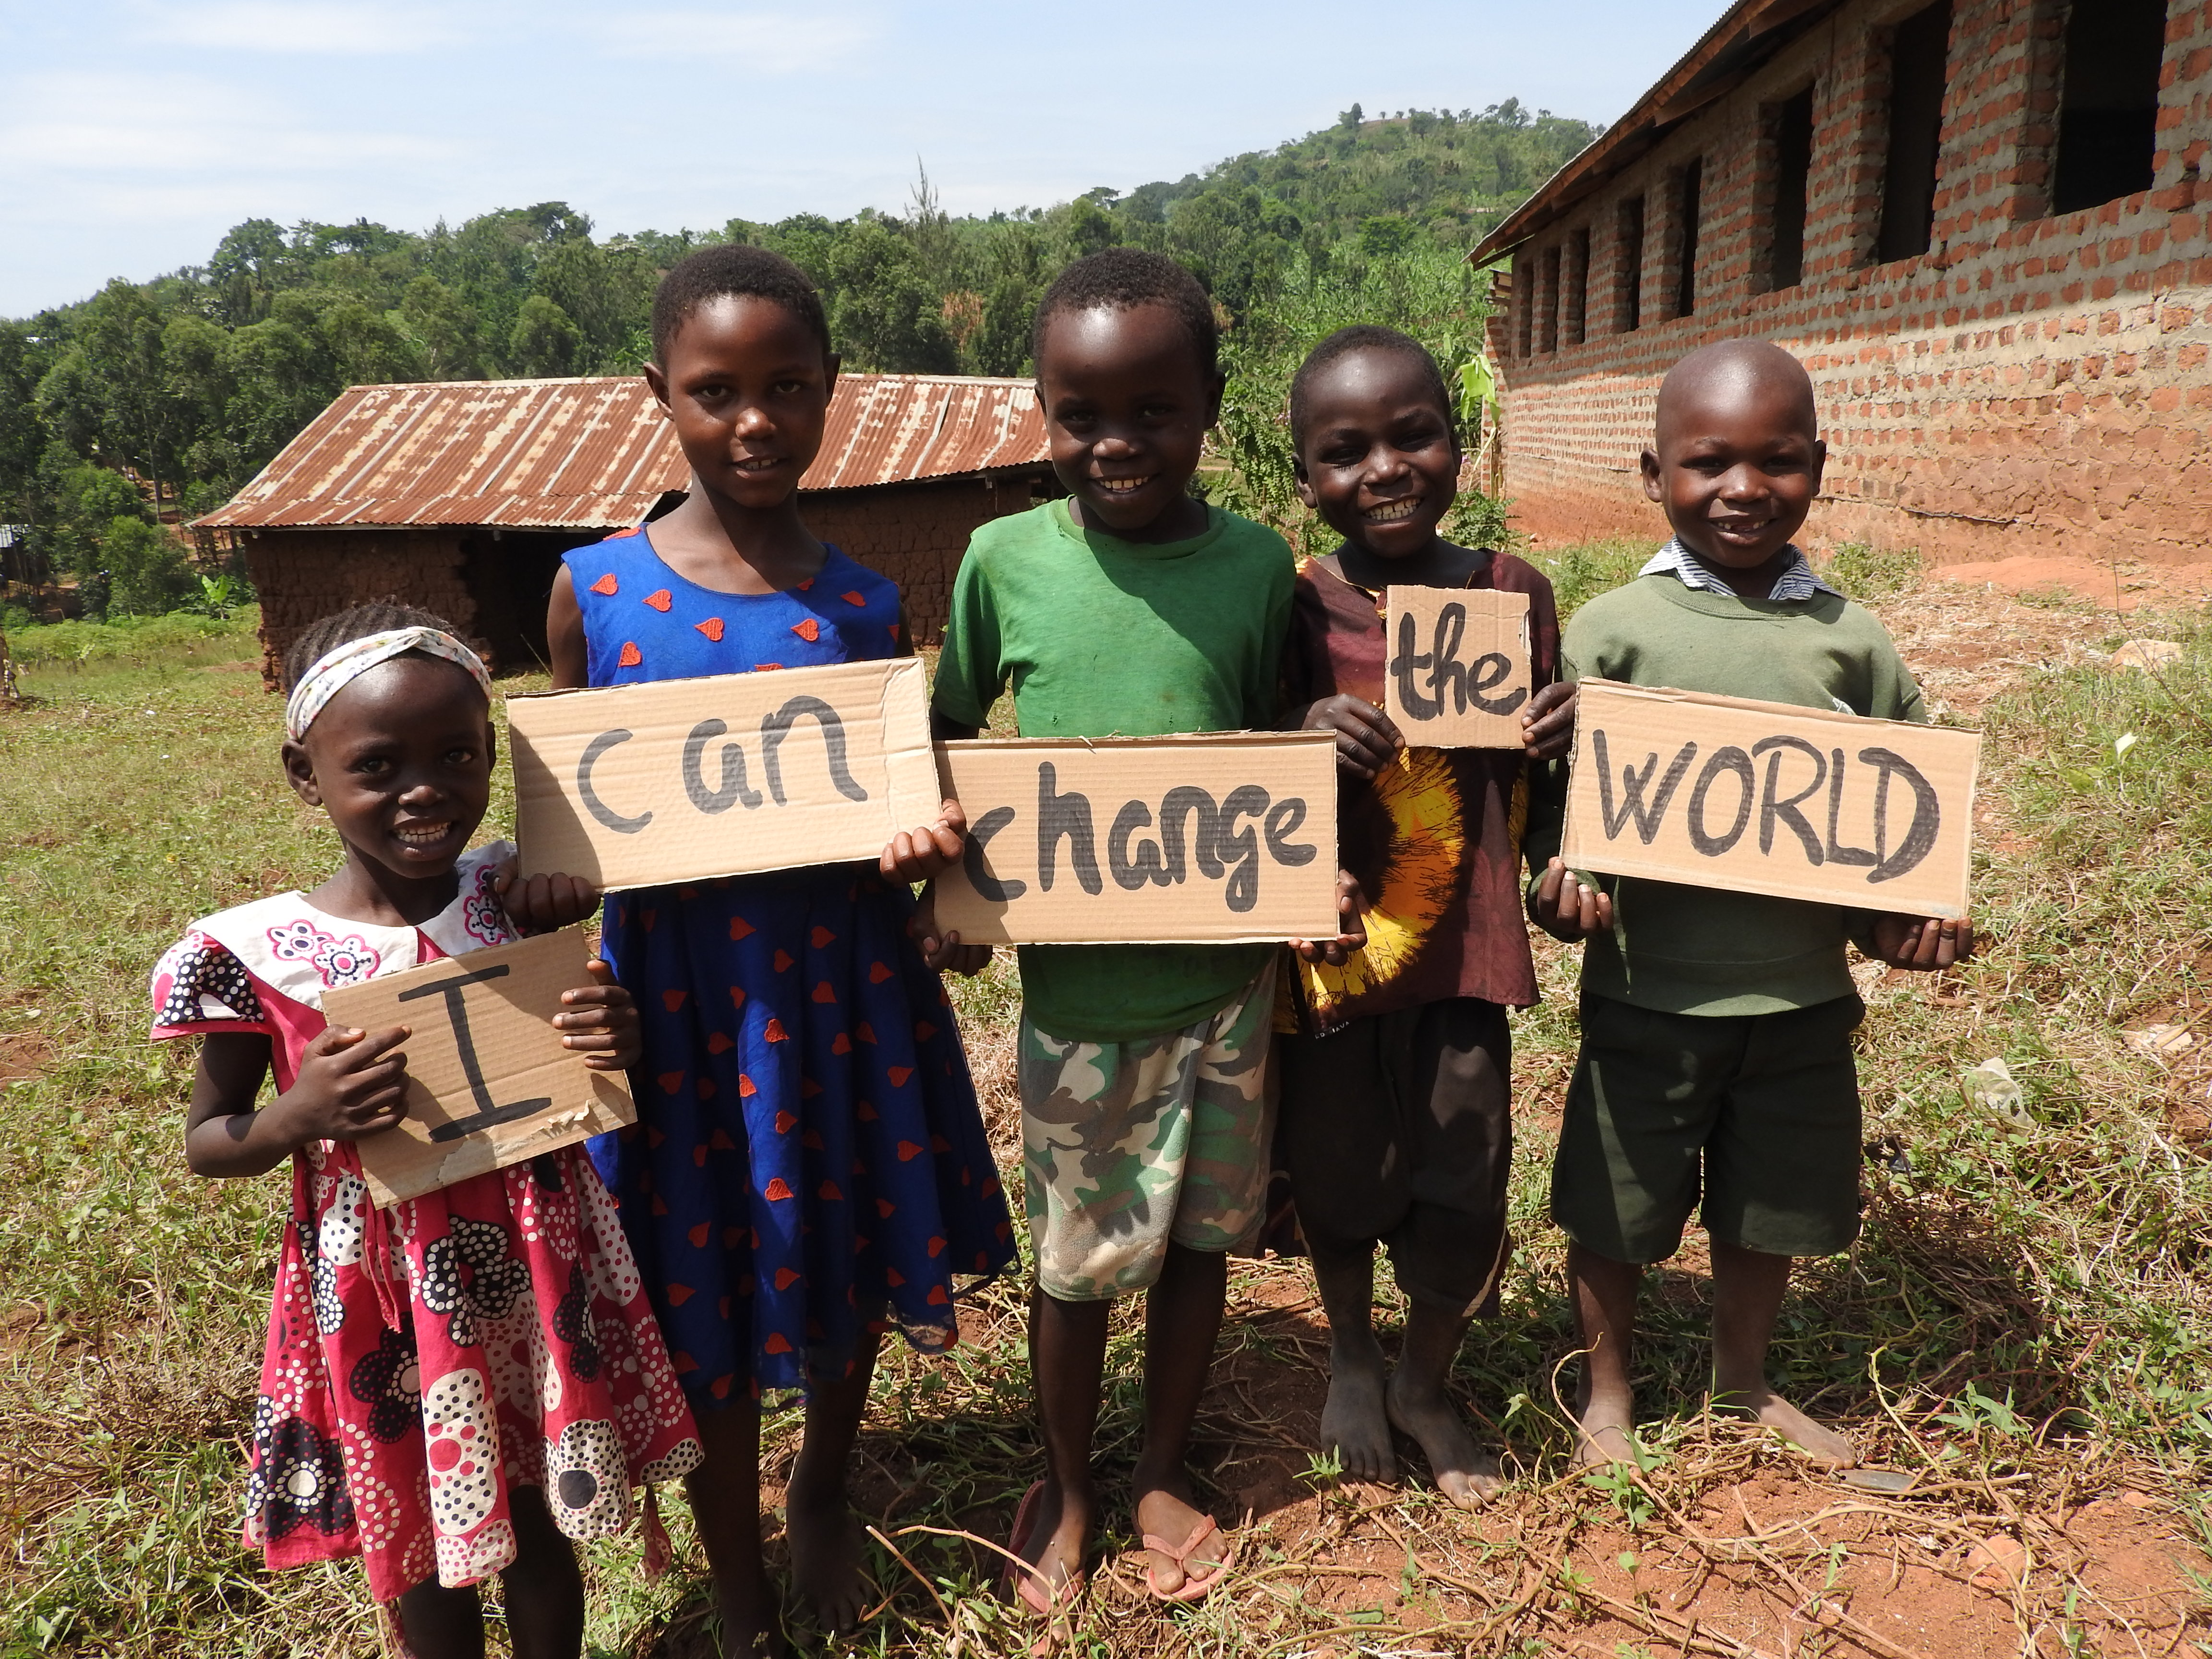 I
can
change
the
WORLD